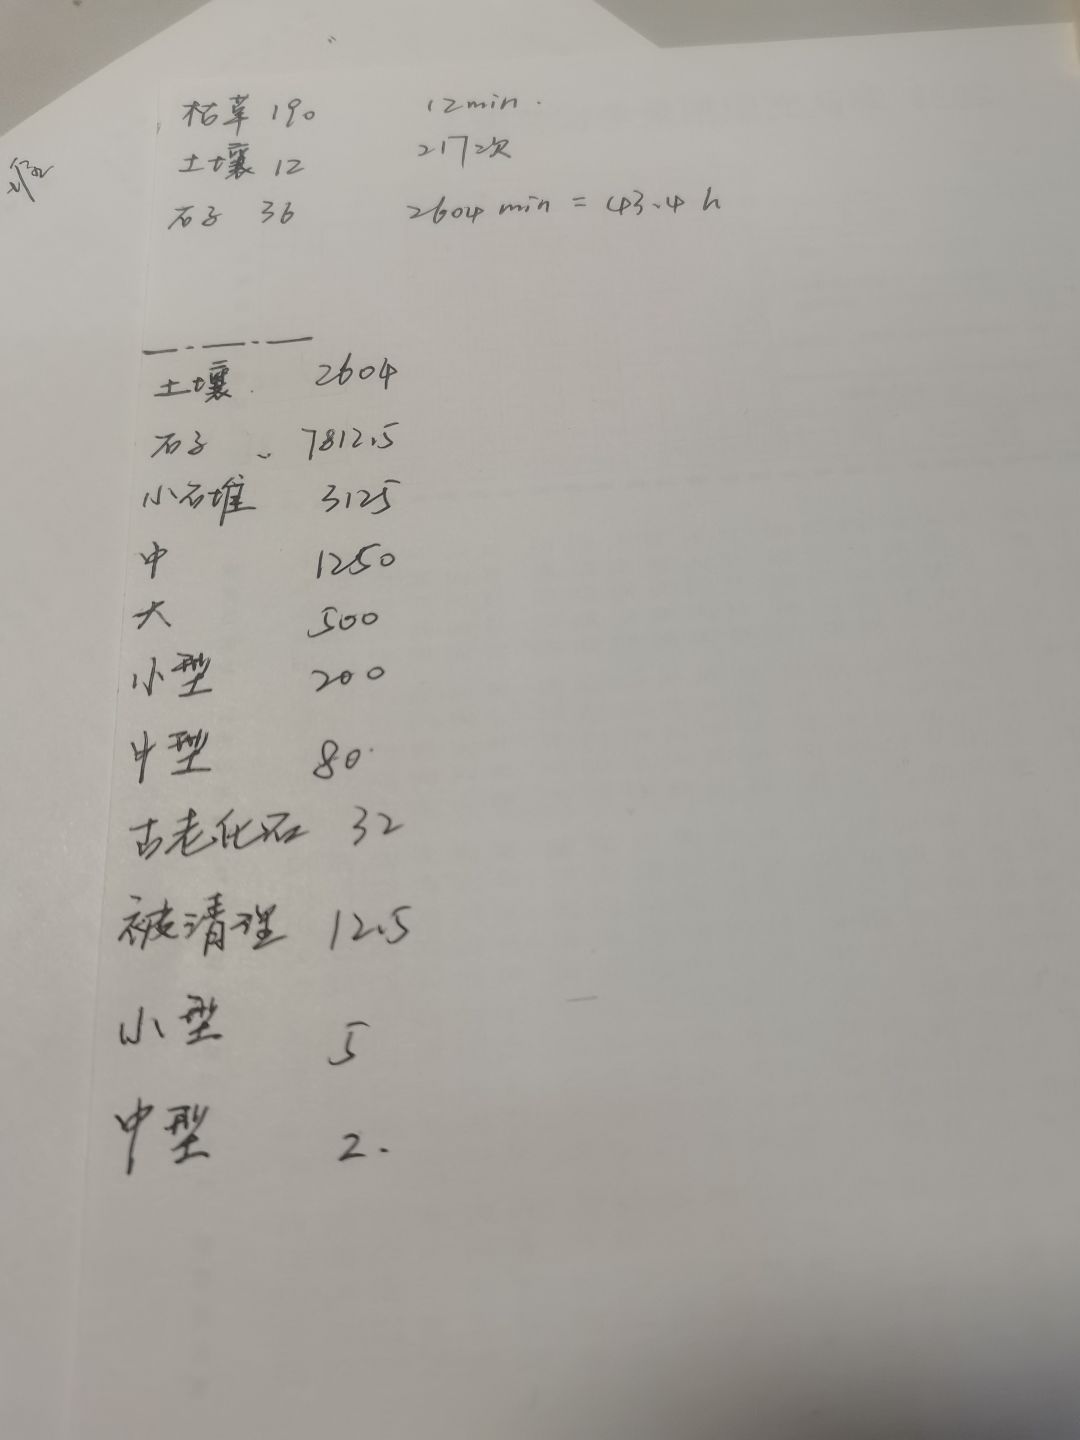 枯草 190 12min.
土壤 12 217次
石子 36 2604 min = 43.4 h
土壤 2604
石子 7812.5
小石堆 3125
中 1250
大 500
小型 200
中型 80
古老化石 32
被清理 12.5
小型 5
中型 2.